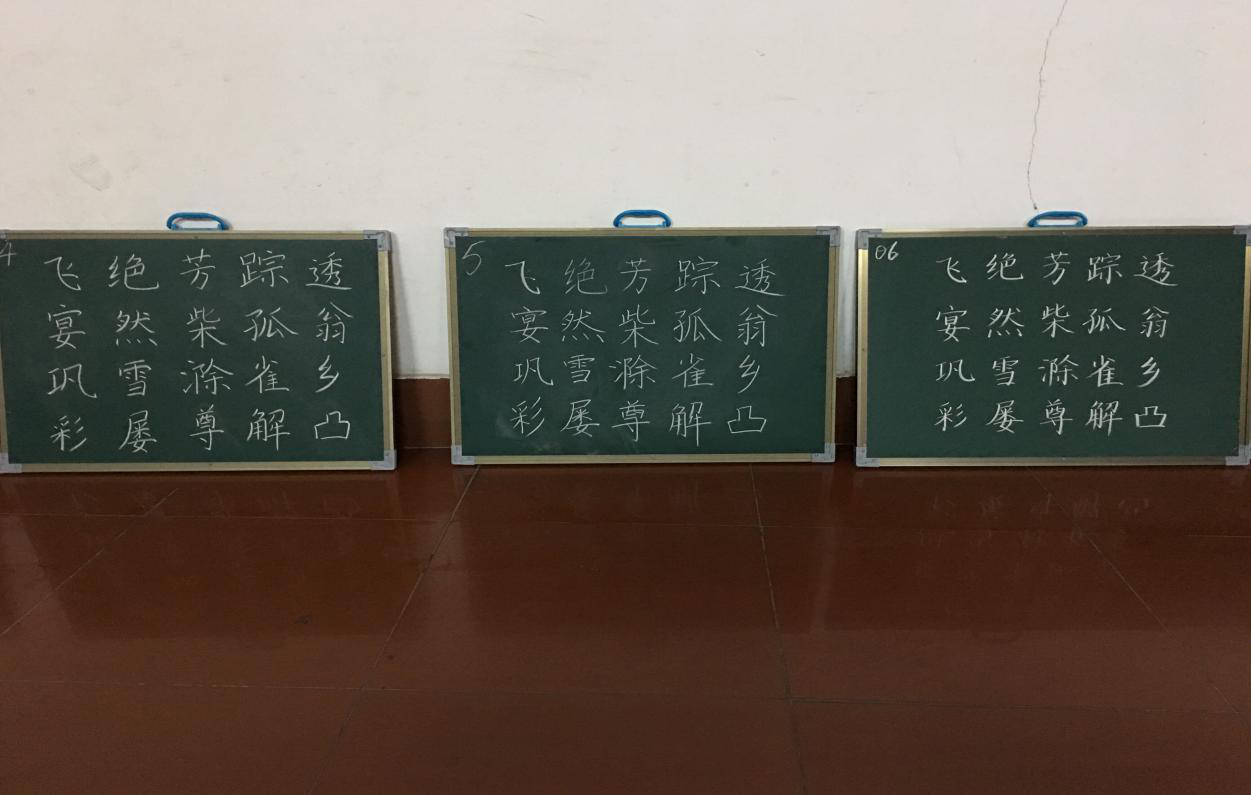 4
飞绝芳踪透
宴然柴孤翁
巩雪滁雀乡
彩屡尊解凸
5
飞绝芳踪透
宴然柴孤翁
巩雪滁雀乡
彩屡尊解凸
06
飞绝芳踪透
宴然柴孤翁
巩雪滁雀乡
彩屡尊解凸